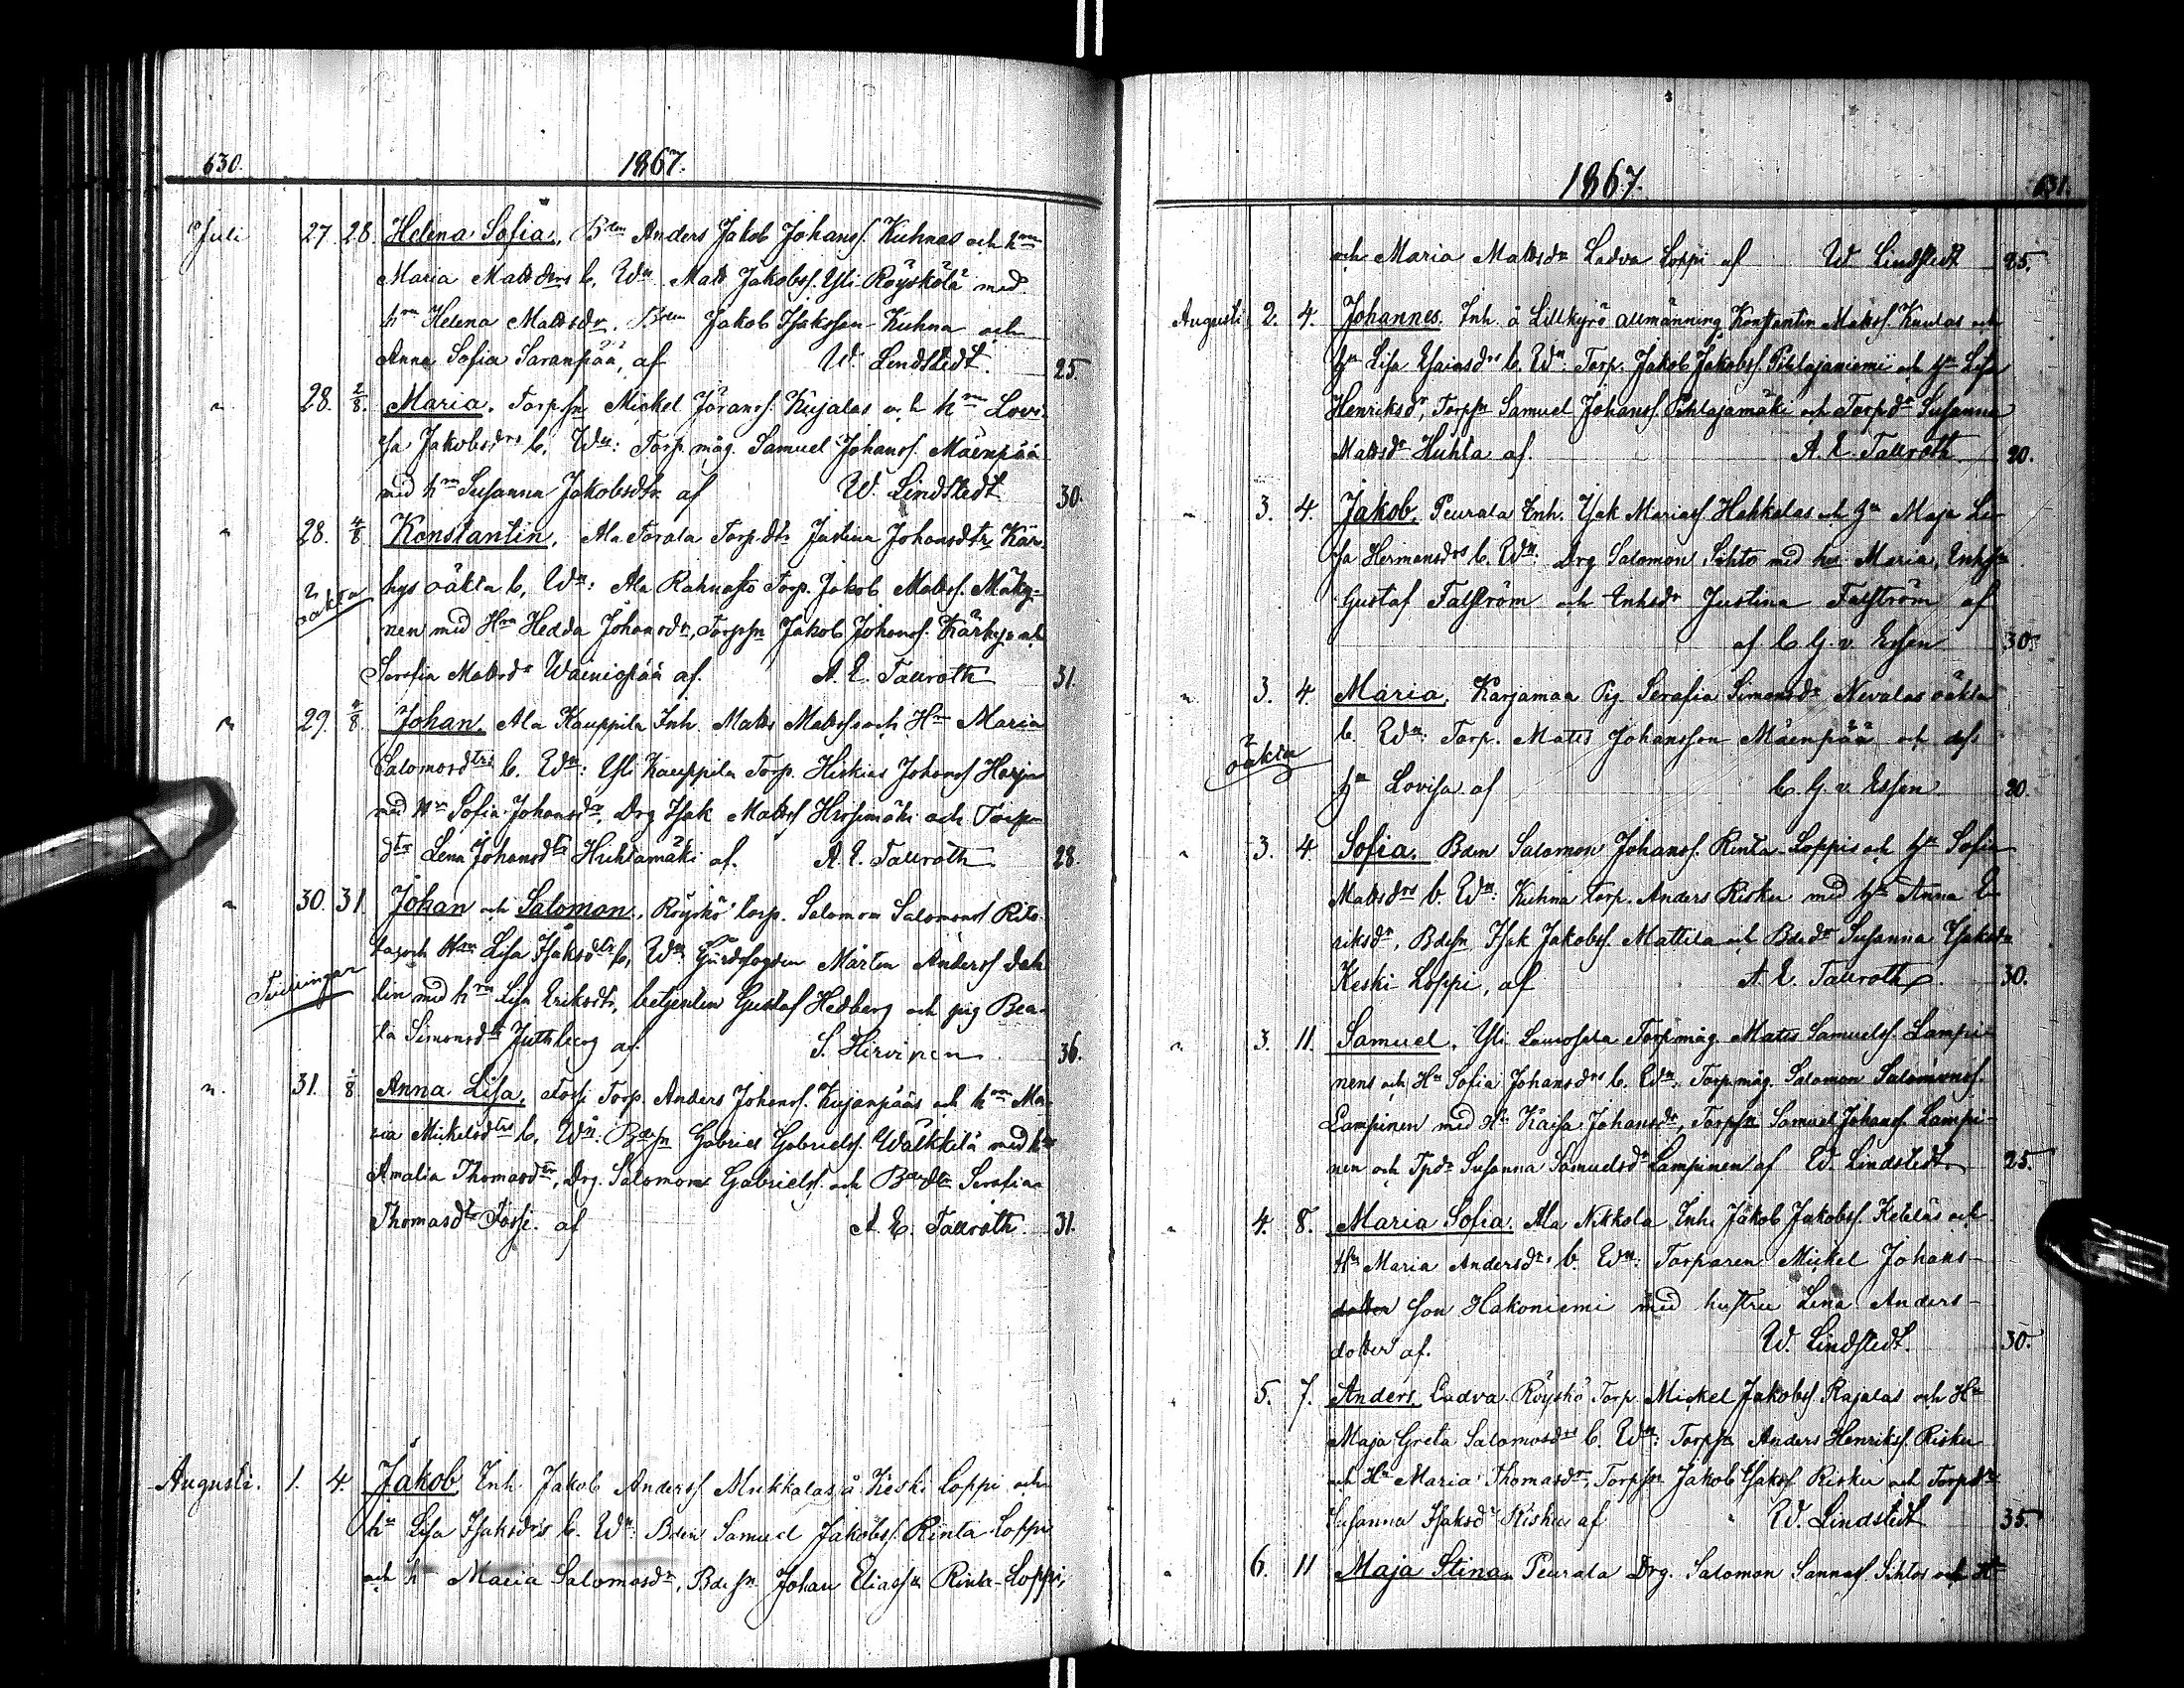 630. 1867.
Juli 27. 28. Helena Sofia, Bdn Anders Jakob Johanss. Kuhnas och hm
Maria Mattsdtrs b. Wn Matts Jakobss. Yli-Röyskölä med
hm Helena Mattsdr. Bdn Jakob Isaksson Kuhna och
Anna Sofia Saranpää, af W. Lindstedt. 25.
" 28. 2/8. Maria. Torpsn Mickel Göranss. Kujalas och hm Lovi-
sa Jakobsdrs b. Wn: Torp. måg. Samuel Johanss. Mäenpää
med hm Susanna Jakobsdtr af W. Lindstedt 30.
" 28. 4/8 Konstantin, Ala Torala Torp.dtr Justina Johansdtr Kär-
2 oäkta hys oäkta b, Wn: Ala Rahnasto Torp. Jakob Matss. Mäky-
nen med Hm Hedda Johansdr, Torpsn Jakob Johanss. Kärhys och
Serafia Matsdr Wainiopää af. A. E. Taurath 31.
" 29. 4/8 Johan. Ala Kauppila Inh. Matts Mattss och Hm Maria
Salomosdtrs b. Wn: Yli Kauppila Torp. Hiskias Johanss Harju
med Hm Sofia Johansdr. Drg Isak Mattss Hirsimäki och Torp-
dtr Lena Johansdtr Huhtamäki af. A. E. Taurath 28.
" 30. 31. Johan och Salomon, Röyskö torp. Salomon Salomonss Rito-
las och Hm Lisa Isaksdtrs b, Wn: Gårdsfogden Mårten Anderss Dah-
Tvillingar lin med hm Lisa Eriksdtr, betjenten Gustaf Hedberg och pig Bea-
ta Simonsdtr Juthberg af. S. Hirvinen 36.
". 31. 1/8 Anna Lisa, Torsi Torp. Anders Johanss. Kujanpääs och hm Ma-
ria Mickelsdtrs b. Wn: Bdesn Gabriel Gabrielss. Wälkkilä med hm
Amalia Thomasdtr, Drg. Salomon Gabrielss. och Bdedtr Serafia
Thomasdtr Torsi. af A. E. Taurath 31.
Augusti. 1. 4. Jakob Inh. Jakob Anderss Mukkalas å Keski Loppi och
hm Lisa Isaksdrs b. Wn: Bden Samuel Jakobss. Rinta-Loppi
och h Maria Salomosdr, Bdesn Johan Eliasss Rinta-Loppi,
1867. 631.
och Maria Mattsdr Ladva Loppi af W Lindstedt 25.
Augusti 2. 4. Johannes. Inh. å Lillkyrö allmänning Konstantin Matss. Knulas och
Hn Lisa Esaiasdrs b. Wn: Torp. Jakob Jakobss. Pihlajaniemi och Hn Lisa
Henriksdr, Torpsn Samuel Johanss Pihlajamäki och Torpdr Susanna
Mattsdr Huhta af. A. E. Taurath 20.
" 3. 4. Jakob, Peurala Inh. Isak Mariass. Hahkalas och Hn Maja Lo-
sa Hermansdrs b. Wn: Drg Salomon Sihto med hu Maria, Inhsn
Gustaf Falström och Inhsdr Justina Falström af
af C G. v. Essen 30.
" 3. 4. Maria. Karjamaa Pig. Serafia Simonsdr Nevalas oäkta
b. Wn: Torp. Matts Johansson Mäenpää och dess
2 oäkta Hn Lovisa af C. G. v. Essen 20.
" 3. 4 Sofia. Bden Salomon Johanss. Rinta-Loppis och Hn Sofia
Mattsdrs b. Wn: Kuhna torp. Anders Risku med Hn Anna E-
riksdr, Bdesn Isak Jakobss. Mattila och Bdedr Susanna Isaksdr
Keski-Loppi, af A. E. Taurath. 30.
" 3. 11. Samuel. Yli Laurosela Torpmåg. Matts Samuelss. Lampi-
nens och Hn Sofia Johansdrs b. Wn: Torp.måg. Salomon Salomonss.
Lampinen med Hn Kaisa Johansdr, Torpsn Samuel Johanss. Lampi-
nen och Tpdr Susanna Samuelsdr Lampinen af W. Lindstedt 25.
" 4. 8. Maria Sofia. Ala Nikkola Inh. Jakob Jakobss. Ketoläs och
Hn Maria Andersdrs b. Wn: Torparen Mickel Johans-
dotter son Hakoniemi med hustru Lena Anders-
dotter af. W. Lindstedt. 30.
" 5. 7. Anders. Ladva Röyskö Torp. Mickel Jakobss Rajalas och Hn
Maja Greta Salomosdrs b. Wn: Torpsn Anders Henrikss. Risku
och Hn Maria Thomasdr, Torpsn Jakob Isakss Risku och Torpdr
Susanna Isaksdr Risku af W. Lindstedt 35.
" 6. 11 Maja Stina. Peurala Drg. Salomon Sannass. Sihtos och H